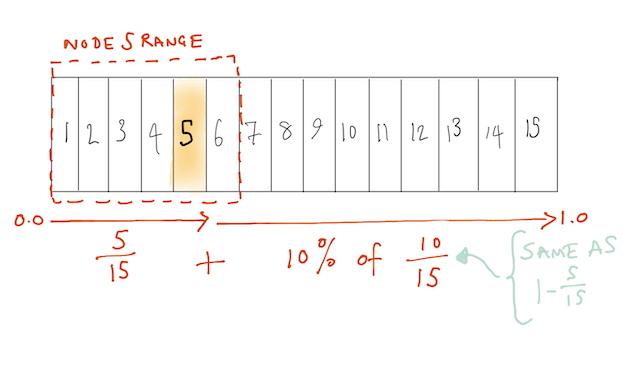 NODE 5 RANGE
1 2 3 4 5 6 7 8 9 10 11 12 13 14 15
0.0 1.0
5/15 + 10% of 10/15
SAME AS
1-5/15